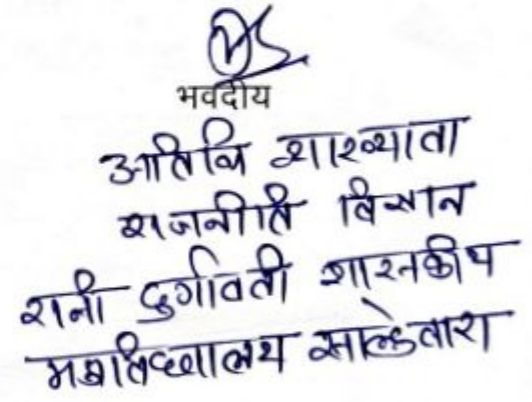 भवदीय
अतिथि व्याख्याता
राजनीति विज्ञान
रानी दुर्गावती शासकीय
महाविद्यालय साल्हेवारा